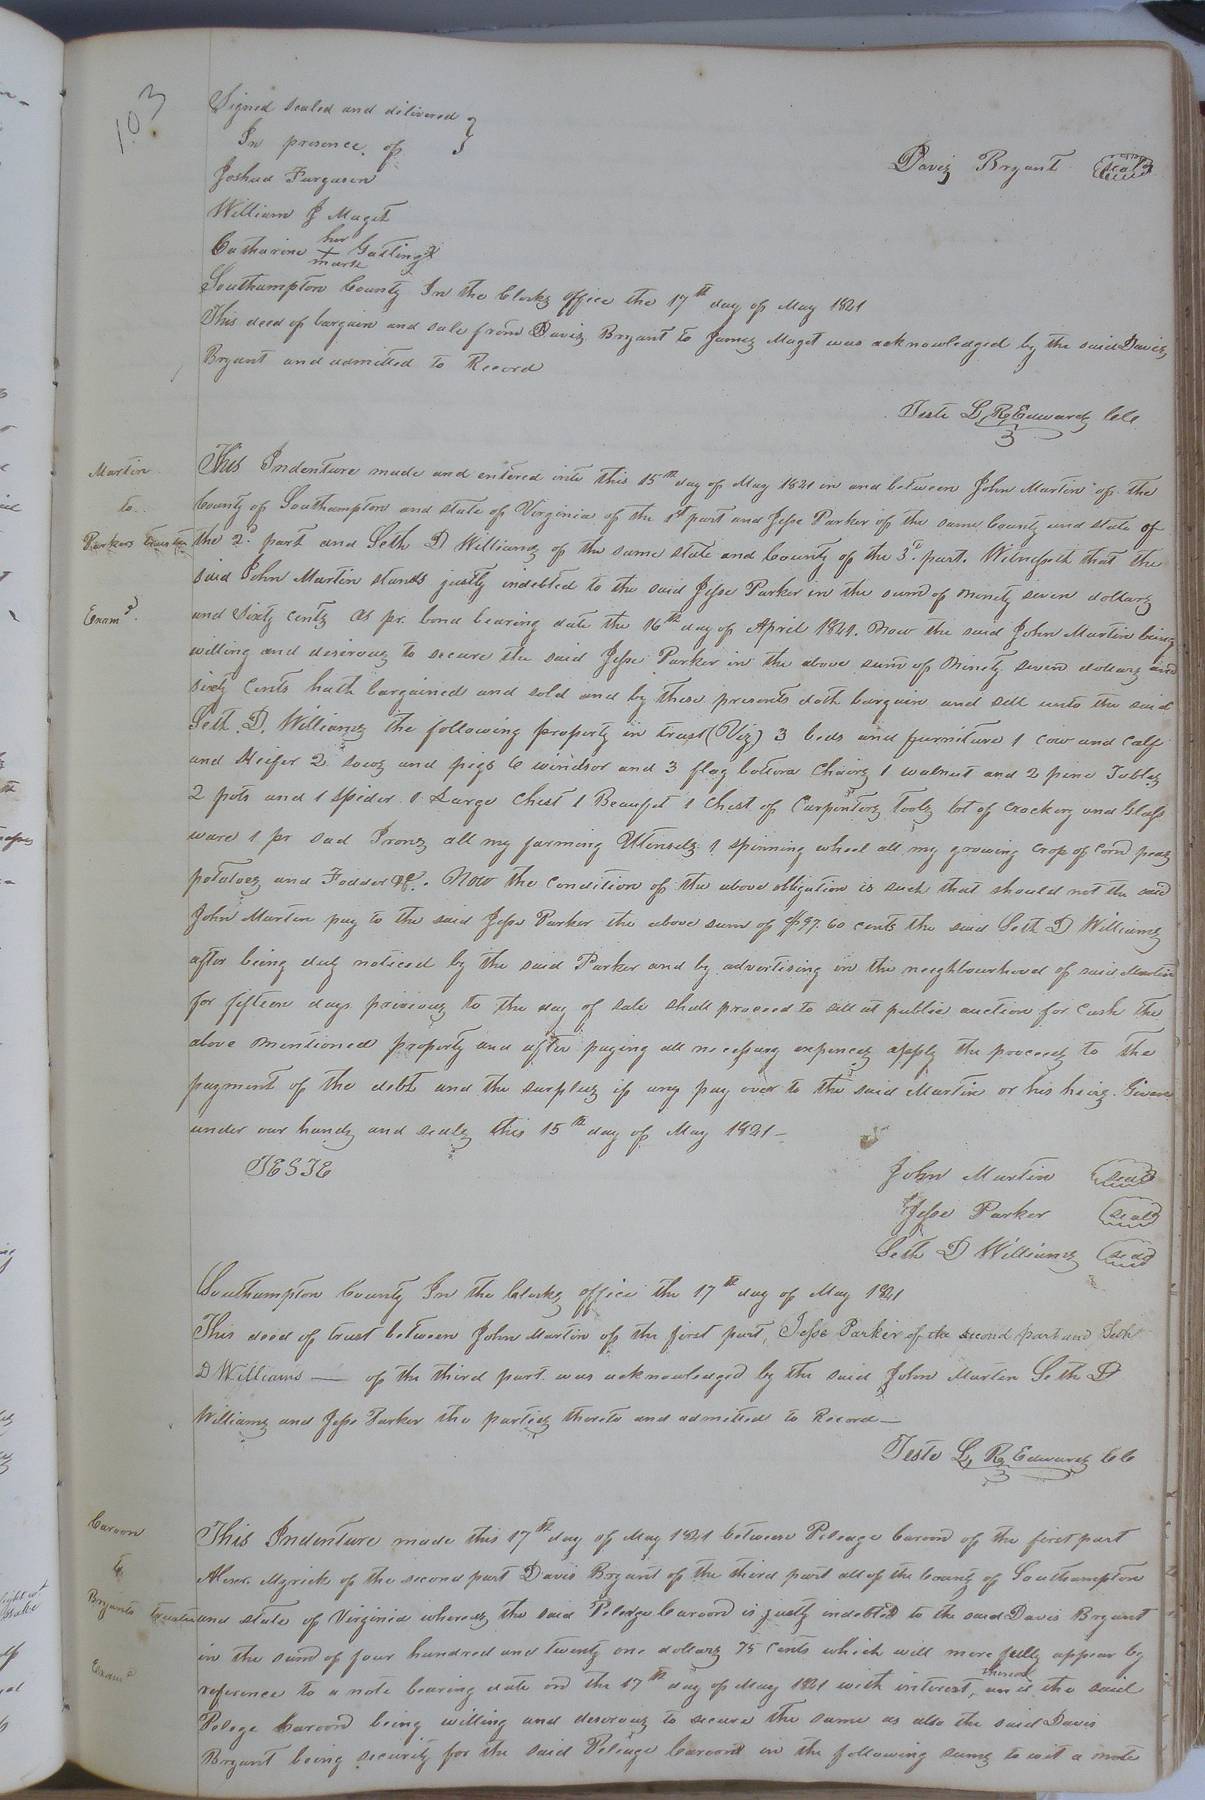 103
Signed sealed and delivered }
In presence of
Davis Bryant seal
Joshua Furgason
William J Maget
Catharine her + mark Gasting
Southampton County In the Clerks office the 17th day of May 1821
This deed of bargain and sale from Davis Bryant to James Maget was acknowledged by the said Davis
Bryant and admitted to Record
Teste L. R. Edwards ClC
Martin
to
Parkers trustee
Exam.d
This Indenture made and entered into this 15th day of May 1821 in and between John Martin of the
County of Southampton and state of Virginia of the 1st part and Jesse Parker of the same County and state of
the 2d part and Seth D Williams of the same state and County of the 3d part. Witnesseth that the
said John Martin stands justly indebted to the said Jesse Parker in the sum of ninety seven dollars
and Sixty cents as pr. bond bearing date the 16th day of April 1821. Now the said John Martin being
willing and desirous to secure the said Jesse Parker in the above sum of Ninety seven dollars and
sixty Cents hath bargained and sold and by these presents doth bargain and sell unto the said
Seth. D. Williams the following property in trust (Viz) 3 beds and furniture 1 cow and calf
and Heifer 2 sows and pigs 6 windsor and 3 flag bottom Chairs 1 walnut and 2 pine Tables
2 pots and 1 Spider 1 Large Chest 1 Beauffet 1 Chest of Carpenters Tools lot of Crockery and Glass
ware 1 pr sad Irons all my farming Utensels 1 spinning wheel all my growing crop of Corn peas
potatoes and Fodder &c. Now the Condition of the above obligation is such that should not the said
John Martin pay to the said Jesse Parker the above sum of $97.60 cents the said Seth D Williams
after being duly noticed by the said Parker and by advertising in the neighbourhood of said Martin
for fifteen days privious to the day of sale shall proceed to sell at public auction for Cash the
above mentioned property and after paying all necessary expences apply the proceeds to the
payment of the debt and the surplus if any pay over to the said Martin or his heirs. Given
under our hands and seals this 15th day of May 1821 –
TESTE
John Martin seal
Jesse Parker seal
Seth D Williams seal
Southampton County In the Clerks office the 17th day of May 1821
This deed of trust between John Martin of the first part, Jesse Parker of the second part and Seth
D Williams — of the third part was acknowledged by the said John Martin Seth D
Williams and Jesse Parker the parties thereto and admitted to Record —
Teste L. R. Edwards ClC
Caroon
to
Bryants trustee
Exam.d
This Indenture made this 17th day of May 1821 between Peleage Caroon of the first part
Alexr. Myrick of the second part Davis Bryant of the third part all of the County of Southampton
and state of Virginia whereas the said Pelege Caroon is justly indebted to the said Davis Bryant
in the sum of four hundred and twenty one dollars 75 Cents which will more fully appear by
reference to a note bearing date on the 17th day of May 1821 with interest, thereon and the said
Pelege Caroon being willing and desirous to secure the same as also the said Davis
Bryant being security for the said Peleage Caroon in the following sums to wit a note